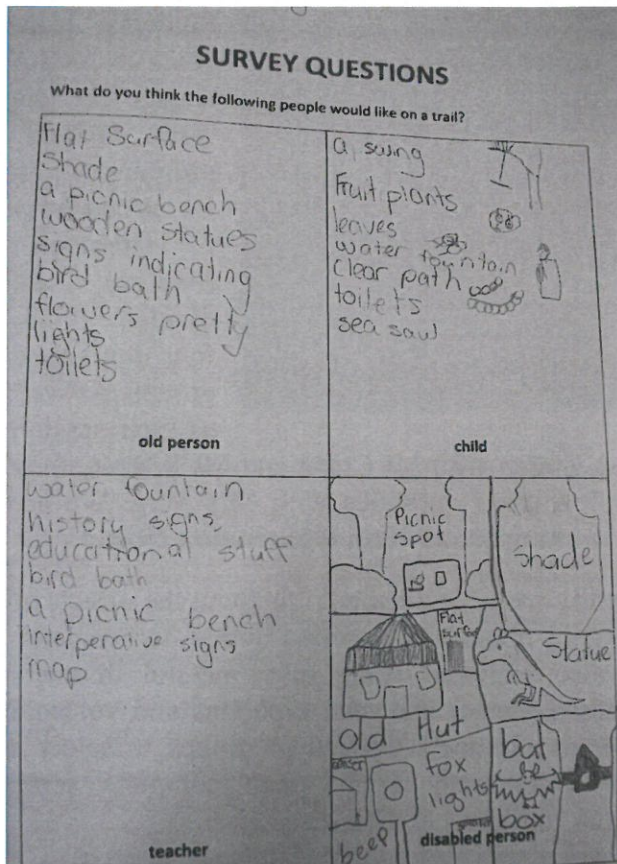 SURVEY QUESTIONS
What do you think the following people would like on a trail?
Flat Surface
Shade
a picnic bench
wooden statues
signs indicating
bird bath
flowers pretty
lights
toilets
old person
a swing
Fruit plants
leaves
water fountain
Clear path
toilets
sea saw
child
water fountain
history signs,
educational stuff
bird bath
a picnic bench
interperative signs
map
teacher
Picnic
spot
Shade
Flat
surface
Statue
old Hut
fox
lights
beep
bat
box
disabled person